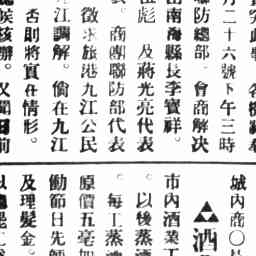 月二十六號下午三時
聯防總部。會商解決
由南海縣長李寶祥。
彪 及蔣光亮代表
。商團聯防部代表
徵求旅港九江公民
江調解。倘在九江
否則將實在情形。
候核辦。又聞日前
城內商〇
▲酒
市內酒業工
。以後蒸酒
。每工蒸酒
原價五毫加
働節日先師
及理髮金。